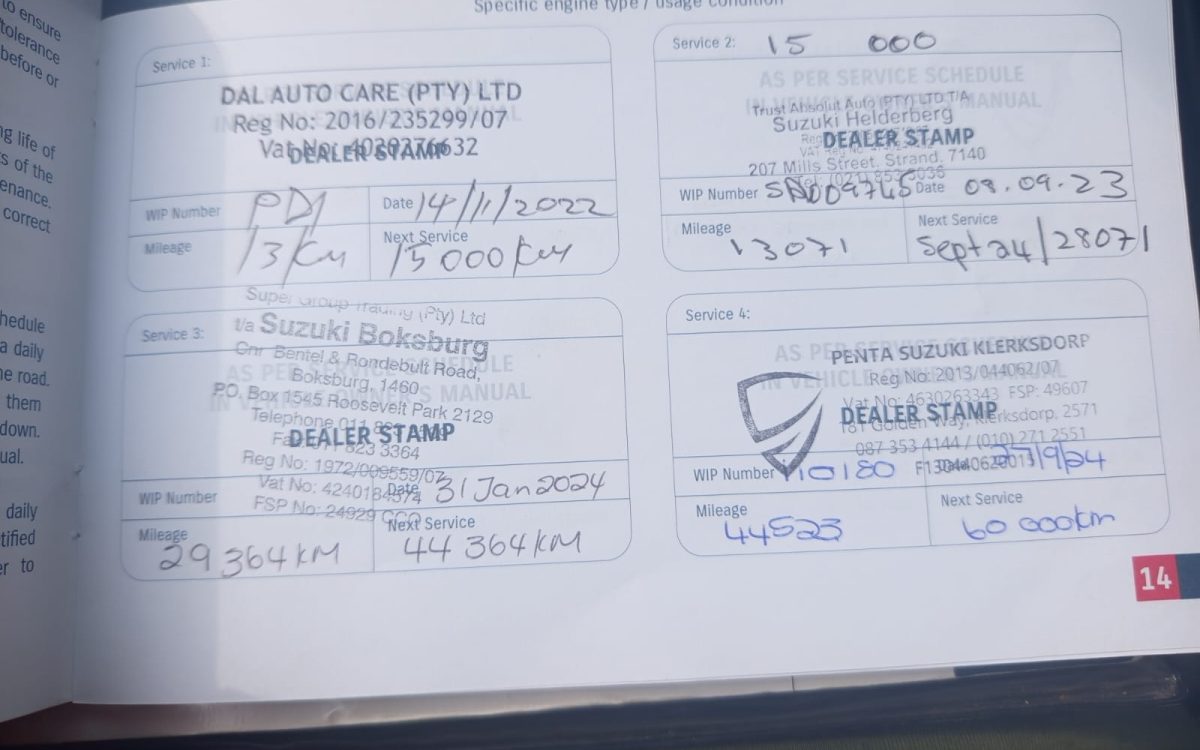 to ensure
tolerance
before or
ng life of
s of the
enance.
correct
hedule
a daily
he road.
them
down.
ual.
daily
tified
er to
Specific engine type / usage condition
Service 1:
DAL AUTO CARE (PTY) LTD
Reg No: 2016/235299/07
Vat No:
DEALER STAMP
WIP Number PDI Date 14/11/2022
Mileage 13 Km Next Service 15 000 Km
Service 2: 15 000
AS PER SERVICE SCHEDULE
Trust Absolut Auto (PTY) LTD T/A
Suzuki Helderberg
DEALER STAMP
207 Mills Street. Strand. 7140
WIP Number Date 08.09.23
Mileage 13071 Next Service Sept 24/28071
Super Group Trading (Pty) Ltd
Service 3:
t/a Suzuki Boksburg
Cnr Bentel & Rondebult Road,
Boksburg, 1460
P.O. Box 1545 Roosevelt Park 2129
Telephone 011
DEALER STAMP
823 3364
Reg No: 1972/009559/07
Vat No:
WIP Number Date 31 Jan 2024
FSP No: 24929
Mileage 29 364 KM Next Service 44 364 KM
Service 4:
PENTA SUZUKI KLERKSDORP
Reg No: 2013/044062/07
Vat No: 4630263343 FSP: 49607
DEALER STAMP
181 Golden Way, Klerksdorp. 2571
087 353 4144 / (010) 271 2551
WIP Number 110180 Date 27/9/24
Mileage 44523 Next Service 60 000km
14